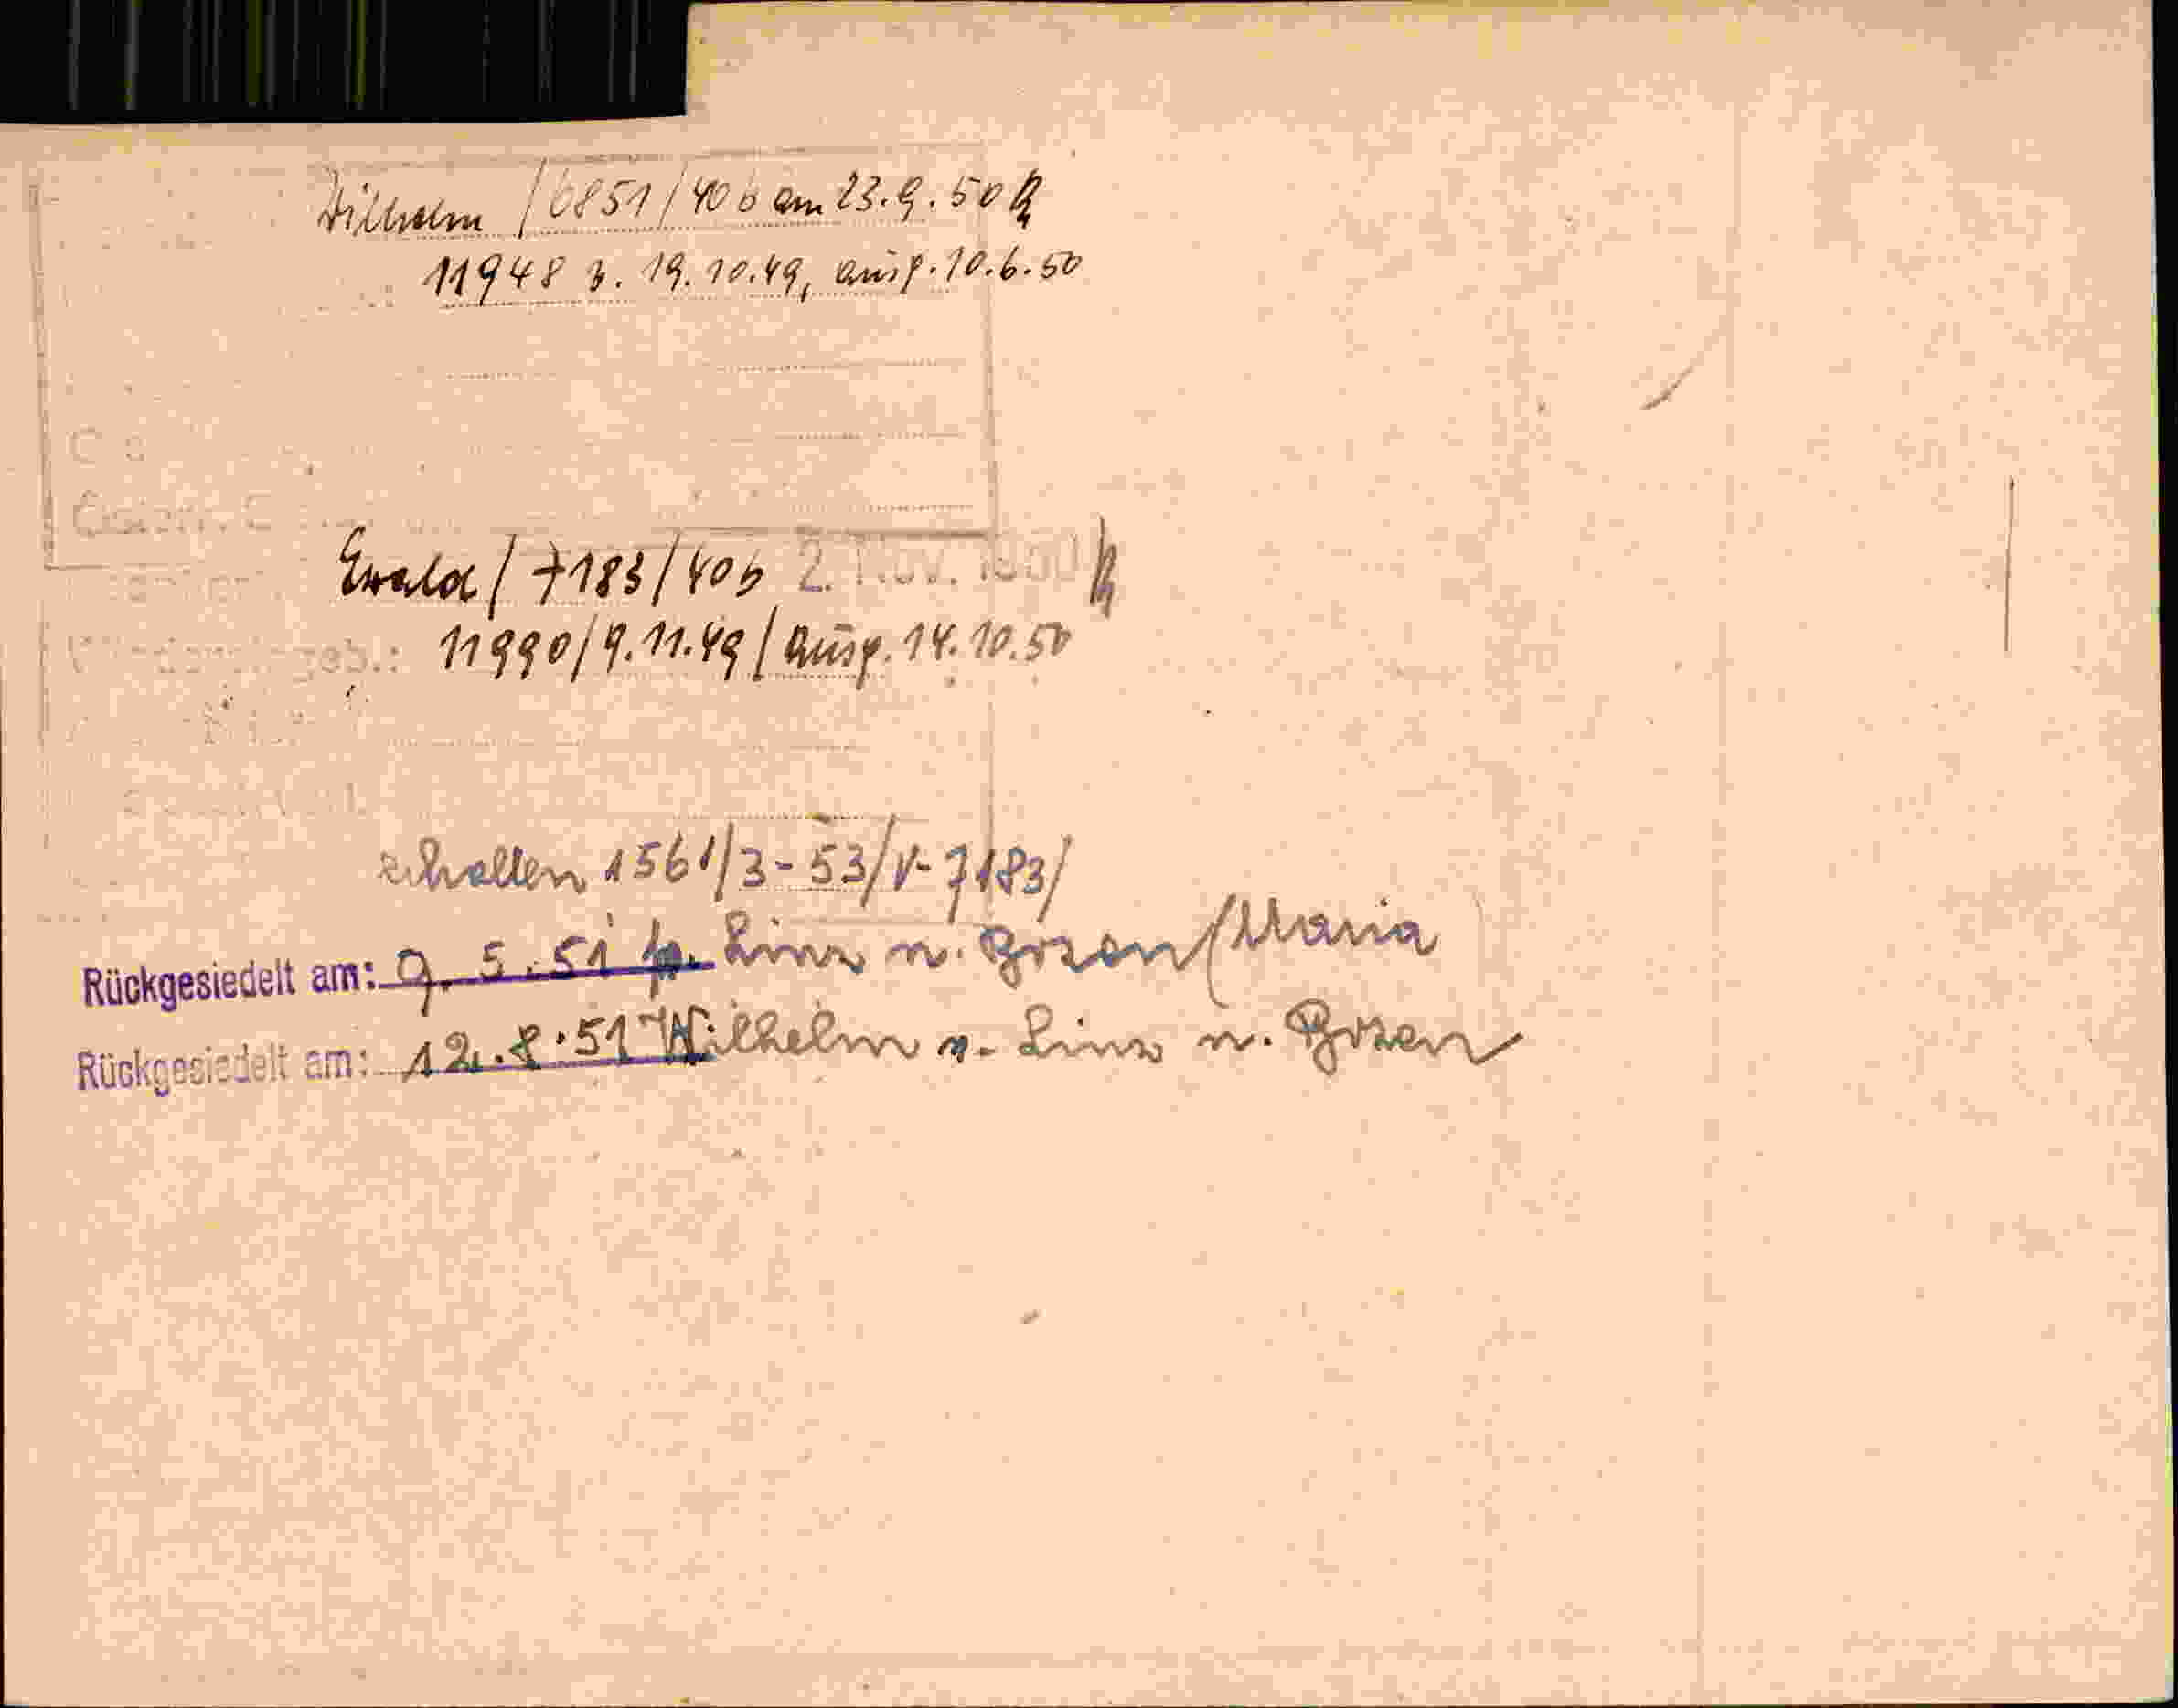 Wilhelm / 6851 / 40 b am 23.9.50
11948 z. 19.10.49, ausg. 10.6.50
Ewald / 7183 / 40 b 2. Nov. 1950
geb.: 11990 / 9.11.49 / ausg. 14.10.50
erhalten 1561/3-53/V-7183/
Rückgesiedelt am: 9.5.51 Linz n. Bozen / Maria
Rückgesiedelt am: 12.8.51 Wilhelm v. Linz n. Bozen